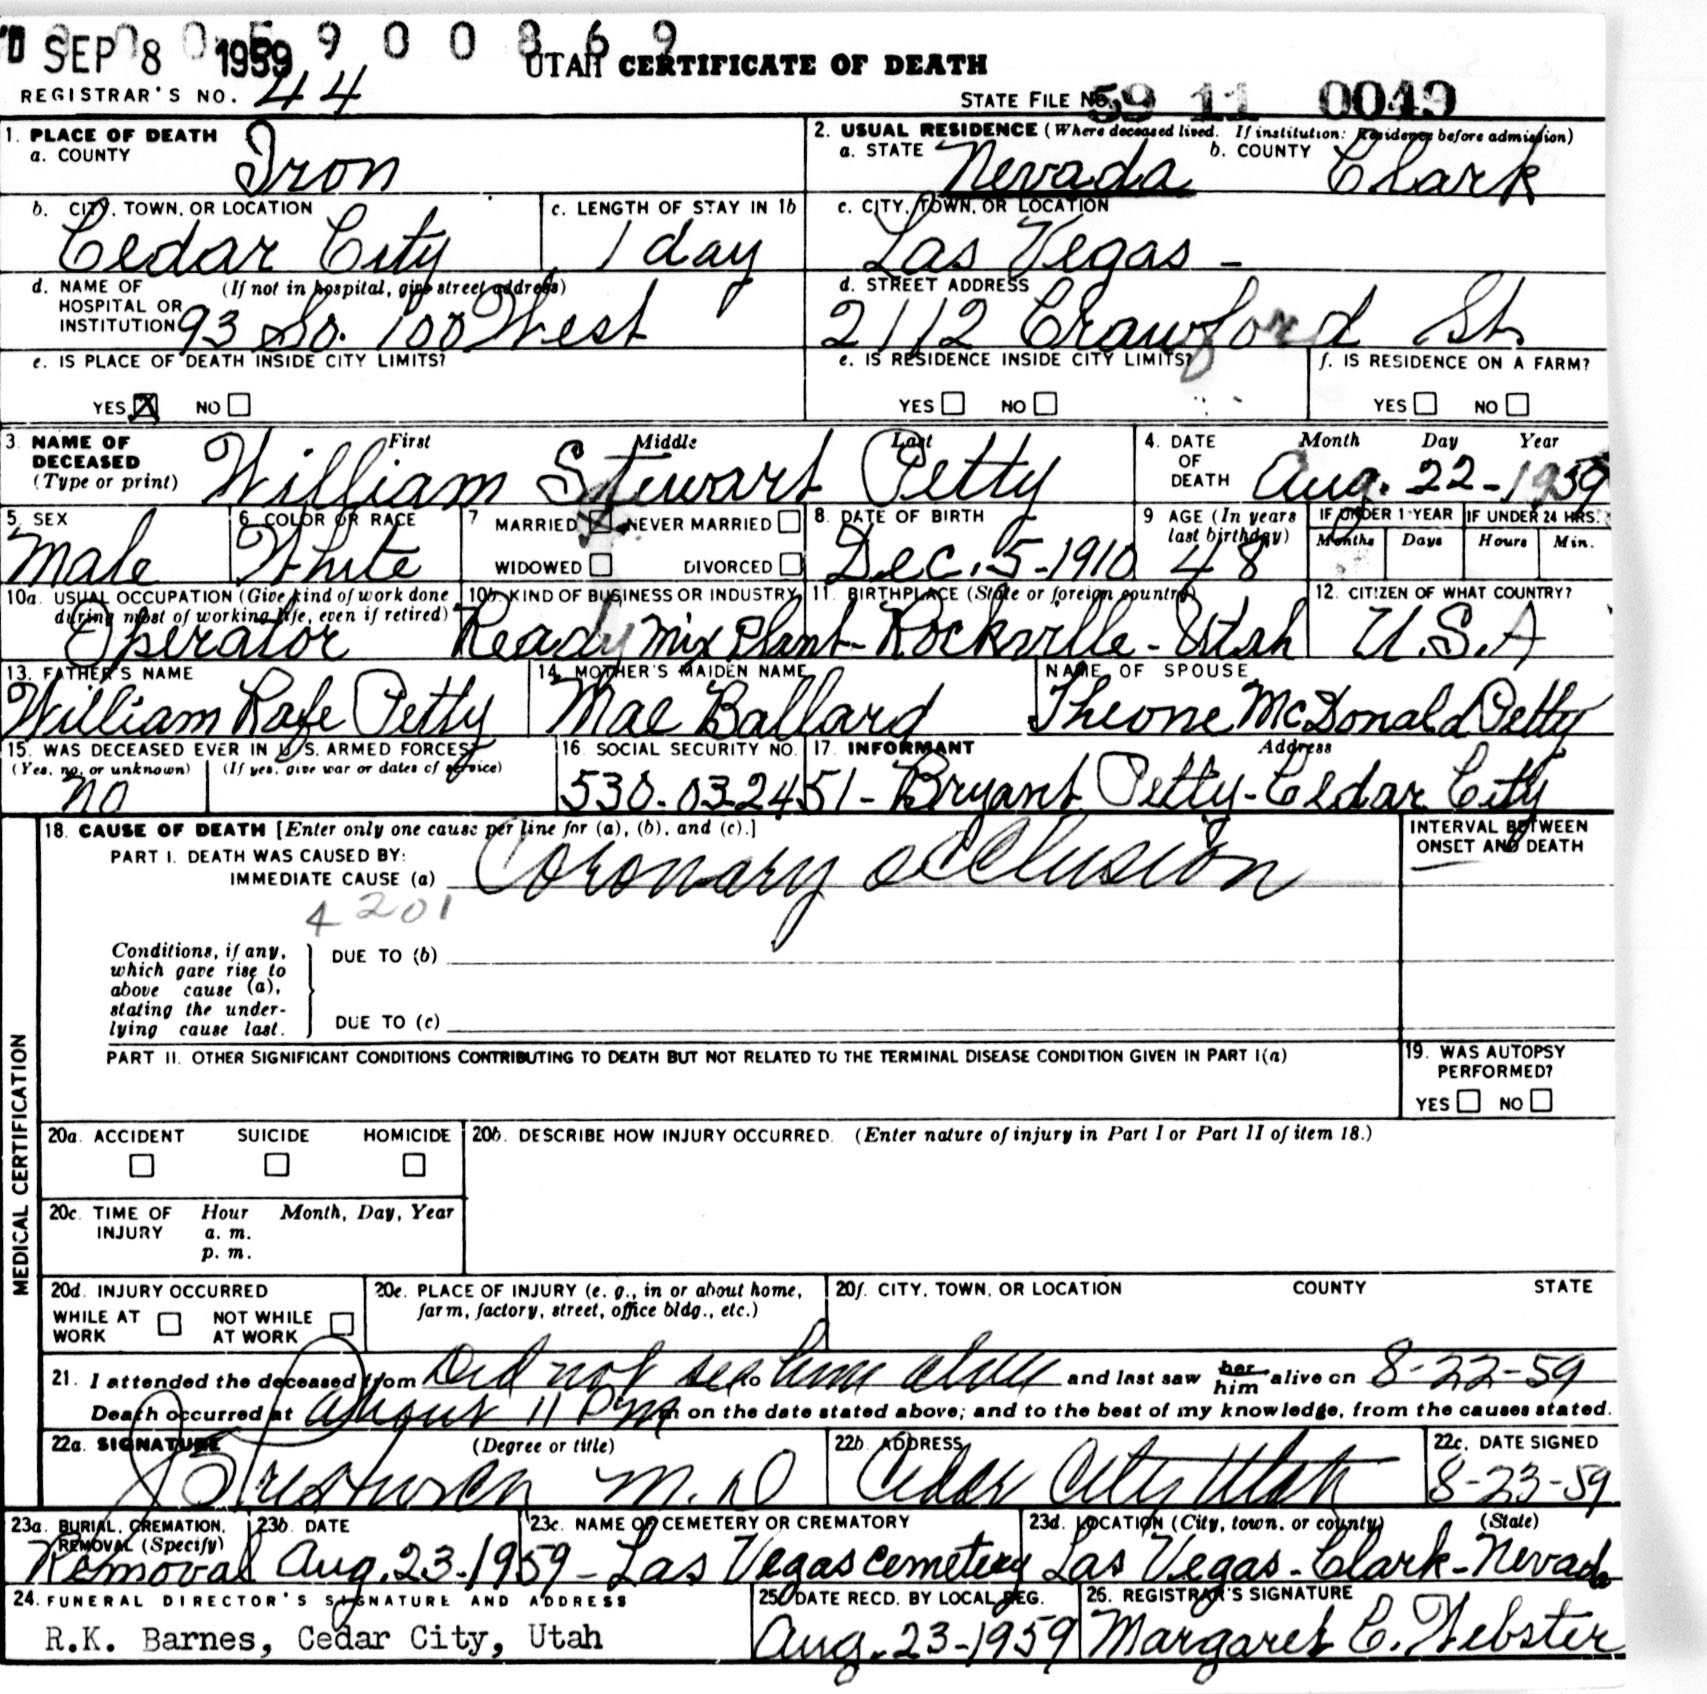 SEP 8 1959
0 0 5 9 0 0 8 6 9
UTAH CERTIFICATE OF DEATH
REGISTRAR'S NO. 44
STATE FILE NO. 59 11 0049
1. PLACE OF DEATH
a. COUNTY Iron
2. USUAL RESIDENCE (Where deceased lived. If institution: Residence before admission)
a. STATE Nevada b. COUNTY Clark
b. CITY, TOWN, OR LOCATION Cedar City
c. LENGTH OF STAY IN 1b 1 day
c. CITY, TOWN, OR LOCATION Las Vegas -
d. NAME OF HOSPITAL OR INSTITUTION (If not in hospital, give street address) 93 So. 100 West
d. STREET ADDRESS 2112 Crawford St.
e. IS PLACE OF DEATH INSIDE CITY LIMITS? YES X NO
e. IS RESIDENCE INSIDE CITY LIMITS? YES NO
f. IS RESIDENCE ON A FARM? YES NO
3. NAME OF DECEASED (Type or print) First Middle Last
William Stewart Petty
4. DATE OF DEATH Month Day Year
Aug. 22-1959
5. SEX Male
6. COLOR OR RACE White
7 MARRIED X NEVER MARRIED WIDOWED DIVORCED
8. DATE OF BIRTH Dec. 5-1910
9 AGE (In years last birthday) 48
IF UNDER 1 YEAR Months Days
IF UNDER 24 HRS. Hours Min.
10a. USUAL OCCUPATION (Give kind of work done during most of working life, even if retired) Operator
10b. KIND OF BUSINESS OR INDUSTRY Ready Mix Plant-
11. BIRTHPLACE (State or foreign country) Rockville-Utah
12. CITIZEN OF WHAT COUNTRY? U.S.A
13. FATHER'S NAME William Rafe Petty
14. MOTHER'S MAIDEN NAME Mae Ballard
NAME OF SPOUSE Theone McDonald Petty
15. WAS DECEASED EVER IN U.S. ARMED FORCES?
(Yes, no, or unknown) (If yes, give war or dates of service)
no
16. SOCIAL SECURITY NO. 530-03-2451-
17. INFORMANT Address
Bryant Petty-Cedar City
18. CAUSE OF DEATH [Enter only one cause per line for (a), (b), and (c).]
PART I. DEATH WAS CAUSED BY:
IMMEDIATE CAUSE (a) Coronary occlusion
INTERVAL BETWEEN ONSET AND DEATH
4201
Conditions, if any, which gave rise to above cause (a), stating the underlying cause last.
DUE TO (b)
DUE TO (c)
PART II. OTHER SIGNIFICANT CONDITIONS CONTRIBUTING TO DEATH BUT NOT RELATED TO THE TERMINAL DISEASE CONDITION GIVEN IN PART I(a)
19. WAS AUTOPSY PERFORMED? YES NO
MEDICAL CERTIFICATION
20a. ACCIDENT SUICIDE HOMICIDE
20b. DESCRIBE HOW INJURY OCCURRED. (Enter nature of injury in Part I or Part II of item 18.)
20c. TIME OF INJURY Hour Month, Day, Year
a. m.
p. m.
20d. INJURY OCCURRED
WHILE AT WORK NOT WHILE AT WORK
20e. PLACE OF INJURY (e. g., in or about home, farm, factory, street, office bldg., etc.)
20f. CITY, TOWN, OR LOCATION COUNTY STATE
21. I attended the deceased from Did not see him alive and last saw her him alive on 8-22-59
Death occurred at about 11 P m on the date stated above; and to the best of my knowledge, from the causes stated.
22a. SIGNATURE (Degree or title)
M.D
22b. ADDRESS Cedar City Utah
22c. DATE SIGNED 8-23-59
23a. BURIAL, CREMATION, REMOVAL (Specify) Removal
23b. DATE Aug. 23-1959-
23c. NAME OF CEMETERY OR CREMATORY Las Vegas cemetery
23d. LOCATION (City, town, or county) (State)
Las Vegas-Clark-Nevada
24. FUNERAL DIRECTOR'S SIGNATURE AND ADDRESS
R.K. Barnes, Cedar City, Utah
25. DATE RECD. BY LOCAL REG. Aug. 23-1959
26. REGISTRAR'S SIGNATURE Margaret C. Webster